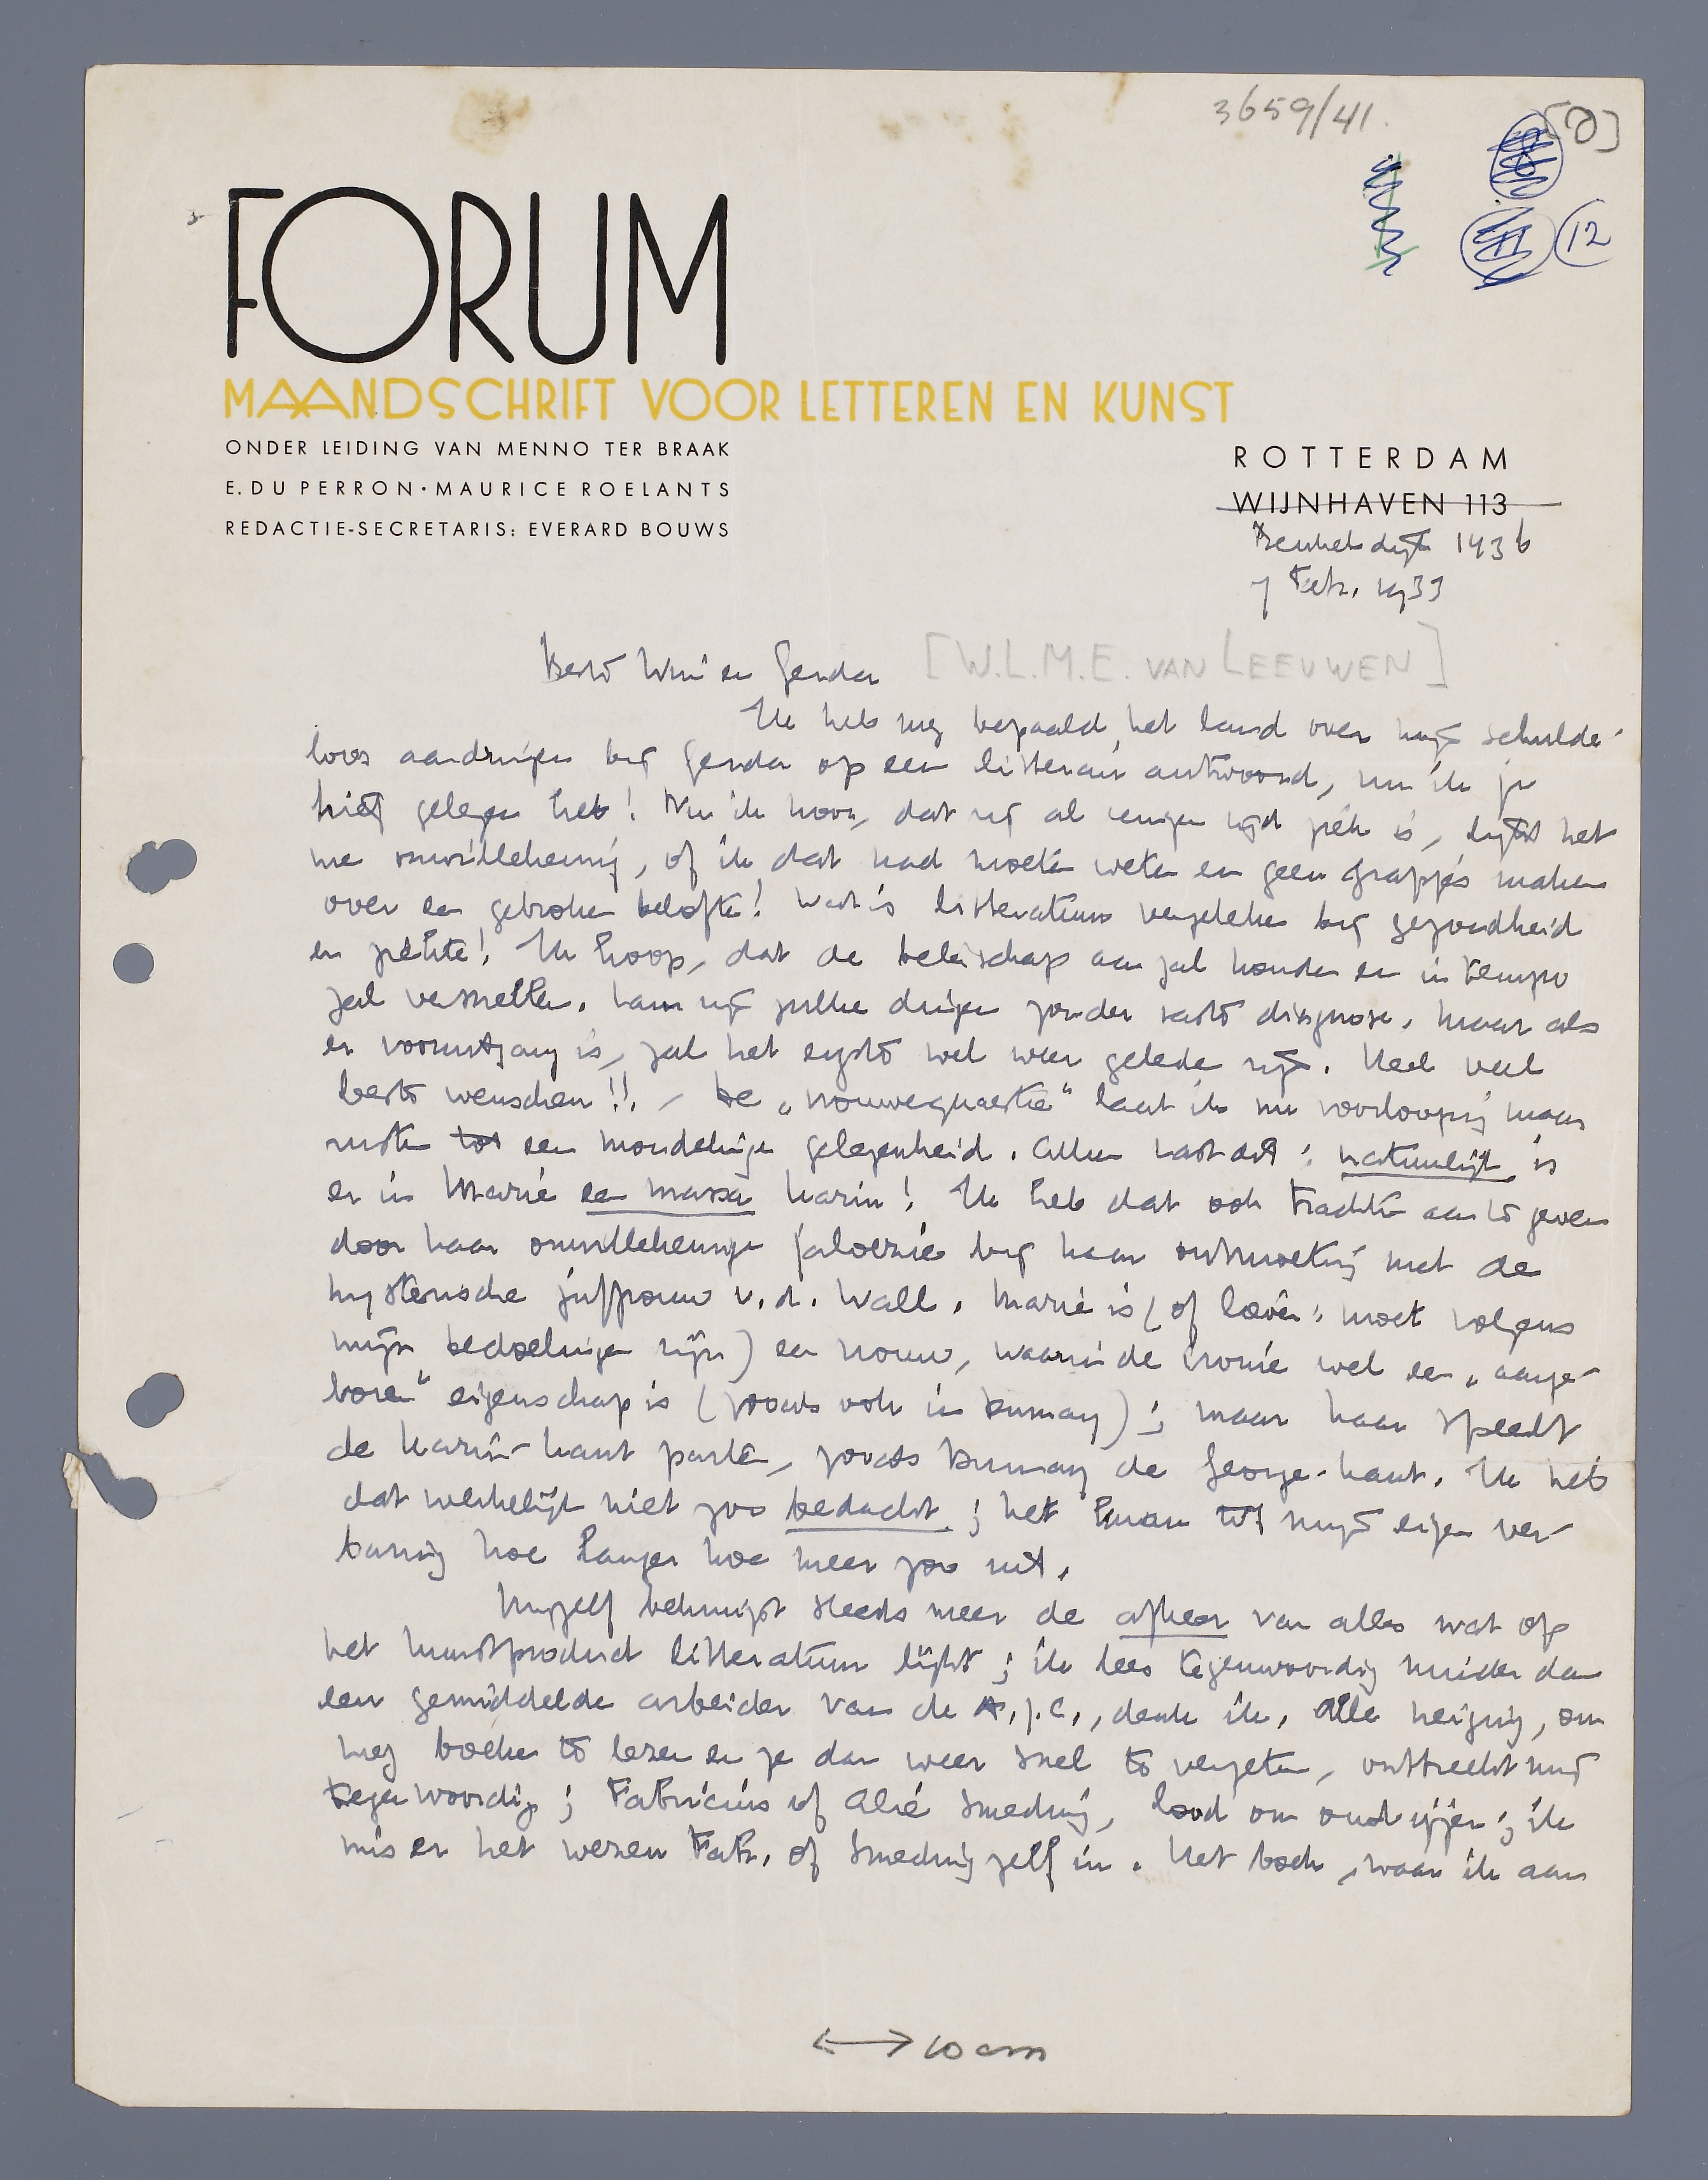 3659/41.
[Q]
12
FORUM
MAANDSCHRIFT VOOR LETTEREN EN KUNST
ONDER LEIDING VAN MENNO TER BRAAK
E. DU PERRON · MAURICE ROELANTS
REDACTIE-SECRETARIS: EVERARD BOUWS
ROTTERDAM
WIJNHAVEN 113
Beukelsdijk 143 b
7 Febr. 1933
Beste Wim en Gerda
[W.L.M.E. VAN LEEUWEN]
Ik heb nog bepaald het land over mijn schulde-
loos aandringen bij Gerda op een litterair antwoord, nu ik je
brief gelezen heb! Nu ik hoor, dat zij al eenigen tijd ziek is, lijkt het
me onwillekeurig, of ik dat had moeten weten en geen grapjes maken
over een gebroken belofte! Wat is litteratuur vergeleken bij gezondheid
en ziekte! Ik hoop, dat de beterschap aan zal houden en in tempo
zal versnellen. Laan zijn jullie dingen zonder vaste diagnose, maar als
er vooruitgang is, zal het ergste wel weer geleden zijn. Heel veel
beste wenschen!! – De „vrouwequaestie" laat ik nu voorloopig maar
rusten tot een mondelinge gelegenheid. Alleen vast dit: natuurlijk is
er in Marie een massa Karin! Ik heb dat ook trachten aan te geven
door haar onwillekeurige jaloezie bij haar ontmoeting met de
hysterische juffrouw v.d. Wall. Marie is (of liever: moet volgens
mijn bedoelingen zijn) een vrouw, waarin de ironie wel een „aange-
boren" eigenschap is (zooals ook in Dumay); maar haar speelt
de Karin-kant parten, zooals Dumay de George-kant. Ik heb
dat werkelijk niet zoo bedacht; het kwam tot mijn eigen ver-
bazing hoe langer hoe meer zoo uit.
Mijzelf bekruipt steeds meer de afkeer van alles wat op
het kunstproduct litteratuur lijkt; ik lees tegenwoordig minder dan
een gemiddelde arbeider van de A.J.C., denk ik. Alle neiging, om
nog boeken te lezen en ze dan weer snel te vergeten, ontbreekt mij
tegenwoordig; Fabricius of Alie Smeding, lood om oud ijzer; ik
mis er het wezen Fabr. of Smeding zelf in. Het boek, waar ik aan
10 cm